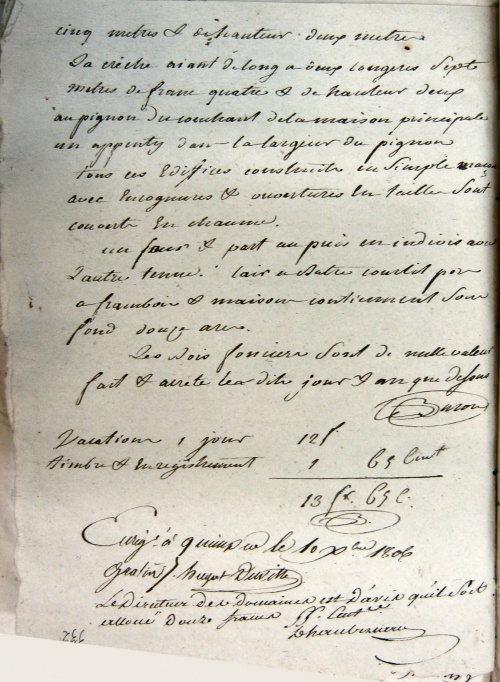 cinq metres & de hauteur deux metres
La crêche aiant de long a deux longeres Sept
metres de franc quatre & de hauteur deux
au pignon du couchant de la maison principale
un appenty dans la largeur du pignon
tous ces Edifices construits en Simple
avec Encognures & ouvertures En taille Sont
couverts En chaume.
un four & part au puis en indivis avec
L'autre tenue. l'air a Battre courtil por
a framboir & maison contiennent Sous
fond douze ares.
Les Bois fonciers Sont de nulle valeur
fait & arrêté Les dits jour & an que dessus
Vacations 1 jour 12 f.
timbre & Enregistrement 1 65 Cent
13 fr. 65 c.
Enrgé a quimper le 10 Xbre 1806
Le Directeur des Domaines est d'avis qu'il Soit
alloué Douze francs